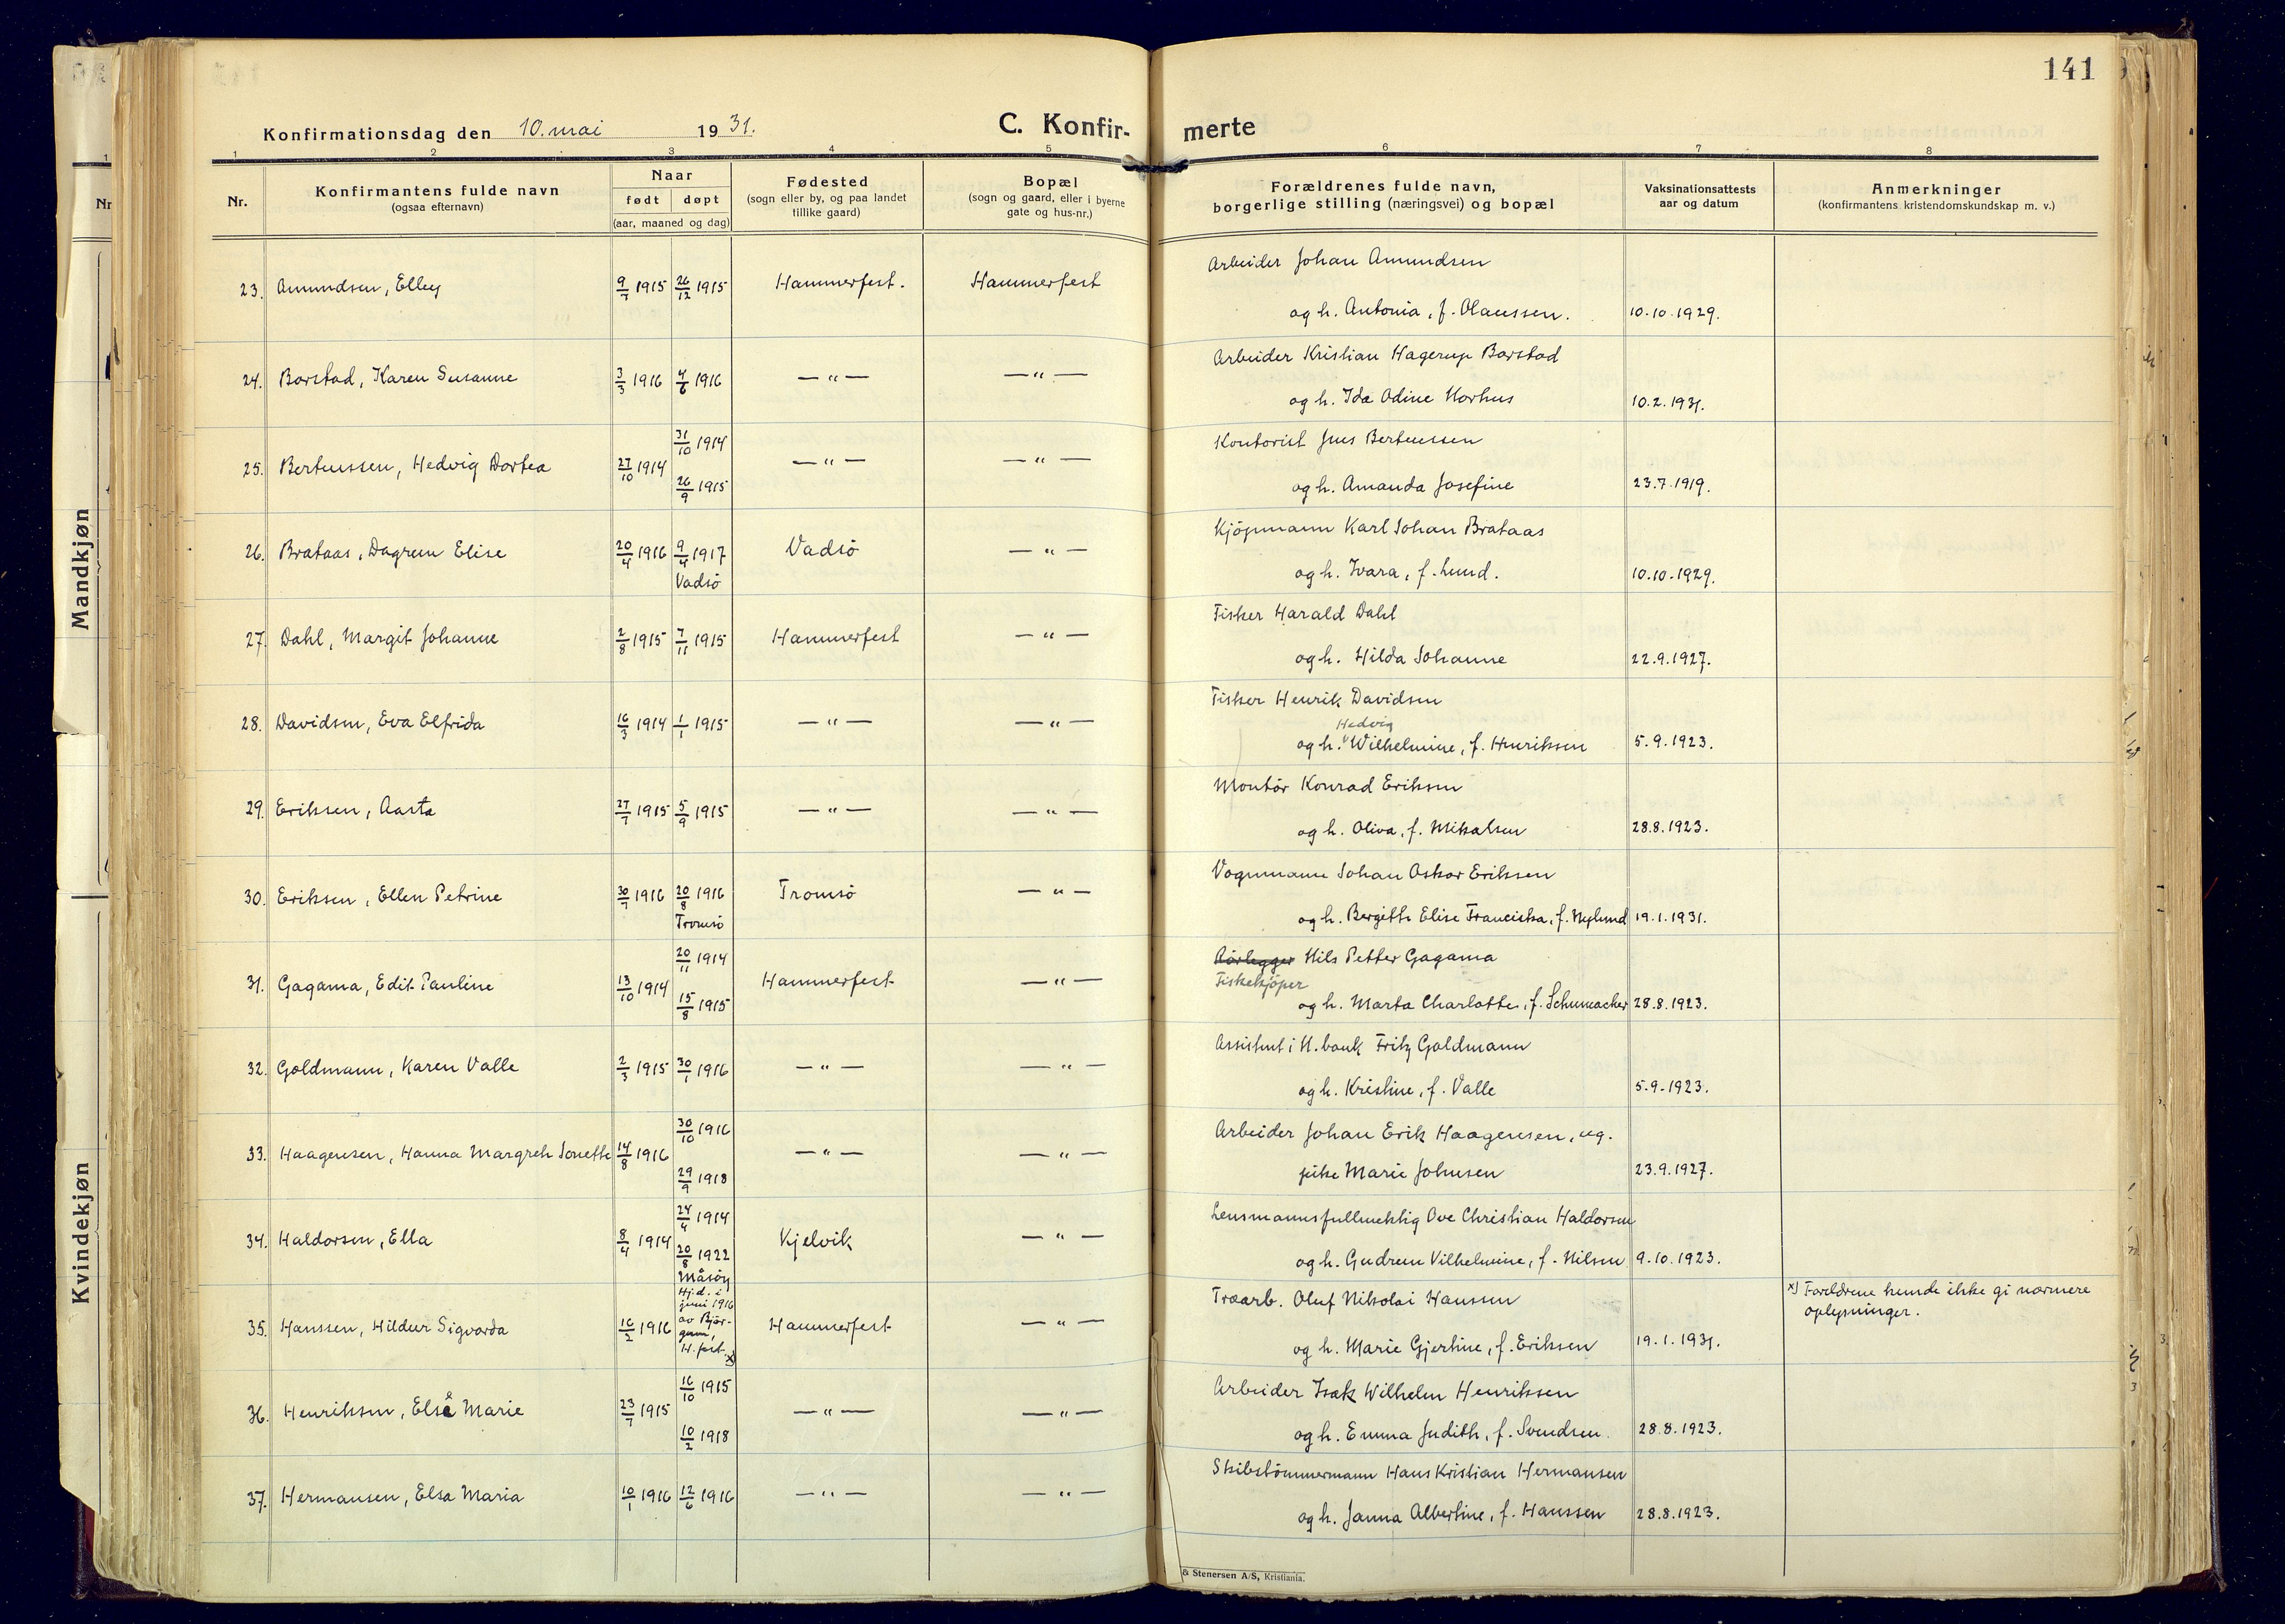 141
Konfirmationsdag den 10. mai 1931.
C. Konfir-
merte
1 2 3 4 5 6 7 8
Nr.
Nr.
Konfirmantens fulde navn
(ogsaa efternavn)
Naar
født døpt
(aar, maaned og dag)
Fødested
(sogn eller by, og paa landet
tillike gaard)
Bopæl
(sogn og gaard, eller i byerne
gate og hus-nr.)
Forældrenes fulde navn,
borgerlige stilling (næringsvei) og bopæl
Vaksinationsattests
aar og datum
Anmerkninger
(konfirmantens kristendomskundskap m. v.)
Mandkjøn
Kvindekjøn
Arbeider Johan Amundsen
23. Amundsen, Elley 9/7 1915 26/12 1915 Hammerfest. Hammerfest
og h. Antonia, f. Olaussen. 10.10.1929.
Arbeider Kristian Hagerup Barstad
24. Barstad, Karen Susanne 3/3 1916 4/6 1916 — " — — " —
og h. Ida Odine Norhus 10.2.1931.
31/10 1914 Kontorist Jens Berteussen
25. Berteussen, Hedvig Dortea 27/10 1914 — " — — " —
26/9 1915 og h. Amanda Josefine 23.7.1919.
Kjöpmann Karl Johan Brataas
26. Brataas, Dagrun Elise 20/4 1916 9/4 1917 Vadsö — " —
Vadsö og h. Ivara, f. Lund. 10.10.1929.
Fisker Harald Dahl
27. Dahl, Margit Johanne 2/8 1915 7/11 1915 Hammerfest — " —
og h. Hilda Johanne 22.9.1927.
Fisker Henrik Davidsen
28. Davidsen, Eva Elfrida 16/3 1914 1/1 1915 — " — — " —
Hedvig
og h. Wilhelmine, f. Henriksen 5.9.1923.
Montör Konrad Eriksen
29. Eriksen, Aasta 27/7 1915 5/9 1915 — " — — " —
og h. Oliva, f. Mikalsen 28.8.1923.
Vognmann Johan Oskar Eriksen
30. Eriksen, Ellen Petrine 30/7 1916 20/8 1916 Tromsö — " —
Tromsö og h. Bergithe Elise Franciska, f. Nylund 19.1.1931.
20/11 1914 Rörlegger Nils Petter Gagama
31. Gagama, Edit Pauline 13/10 1914 Hammerfest — " —
Fiskekjöper
15/8 1915 og h. Marta Charlotte, f. Schumacher 28.8.1923.
Assistent i N. bank Fritz Goldmann
32. Goldmann, Karen Valle 2/3 1915 30/1 1916 — " — — " —
og h. Kristine, f. Valle 5.9.1923.
30/10 1916 Arbeider Johan Erik Haagensen, ug.
33. Haagensen, Hanna Margreth Jonette 14/8 1916 — " — — " —
29/9 1918 pike Marie Johnsen 23.9.1927.
24/4 1914 Lensmannsfullmektig Ove Christian Haldorsen
34. Haldorsen, Ella 8/4 1914 Kjelvik — " —
20/8 1922 og h. Gudrun Vilhelmine, f. Nilsen 9.10.1923.
Måsöy
Hj.d. i
juni 1916
av Bjør-
gum,
H.fest. x)
35. Hanssen, Hildur Sigvarda 16/2 1916 Hammerfest — " —
Træarb. Oluf Nikolai Hanssen
og h. Marie Gjertine, f. Eriksen 19.1.1931.
x) Foreldrene kunde ikke gi nærmere
oplysninger.
16/10 1915 Arbeider Isak Wilhelm Henriksen
36. Henriksen, Else Marie 23/7 1915 — " — — " —
10/2 1918 og h. Emma Judith, f. Svendsen. 28.8.1923.
Skibstömmermann Hans Kristian Hermansen
37. Hermansen, Elsa Maria 10/1 1916 12/6 1916 — " — — " —
og h. Janna Albertine, f. Hanssen 28.8.1923.
& Stenersen A/S, Kristiania.